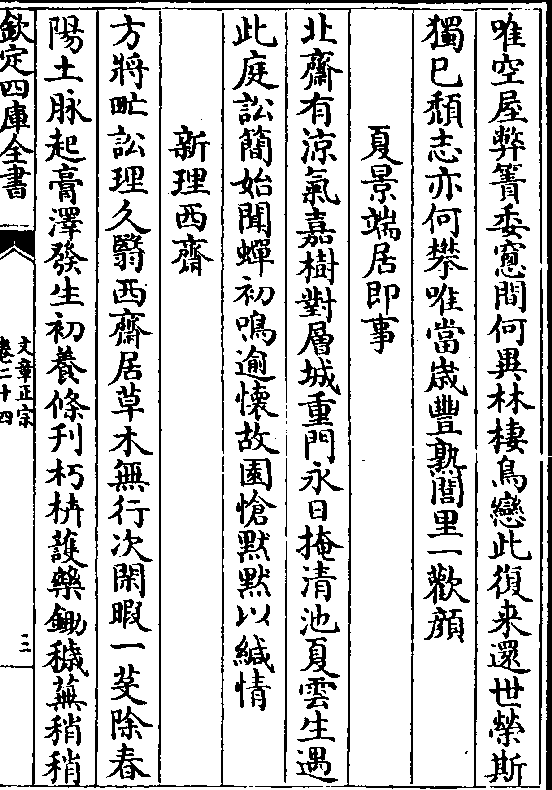 唯空屋弊箐委窻間何異林棲鳥戀此復来還世榮斯
獨已頽志亦何攀唯當歳豐熟閭里一歡顔
夏景端居即事
北齋有涼氣嘉樹對層城重門永日掩清池夏雲生遇
此庭訟簡始聞蟬初鳴逾懐故園愴黙黙以緘情
新理西齋
方將𤰞訟理久翳西齋居草木無行次閑暇一芟除春
陽土脉起膏澤發生初養條刋朽枿護藥鋤穢蕪稍稍
欽定四庫全書
文章正宗
卷二十四
三